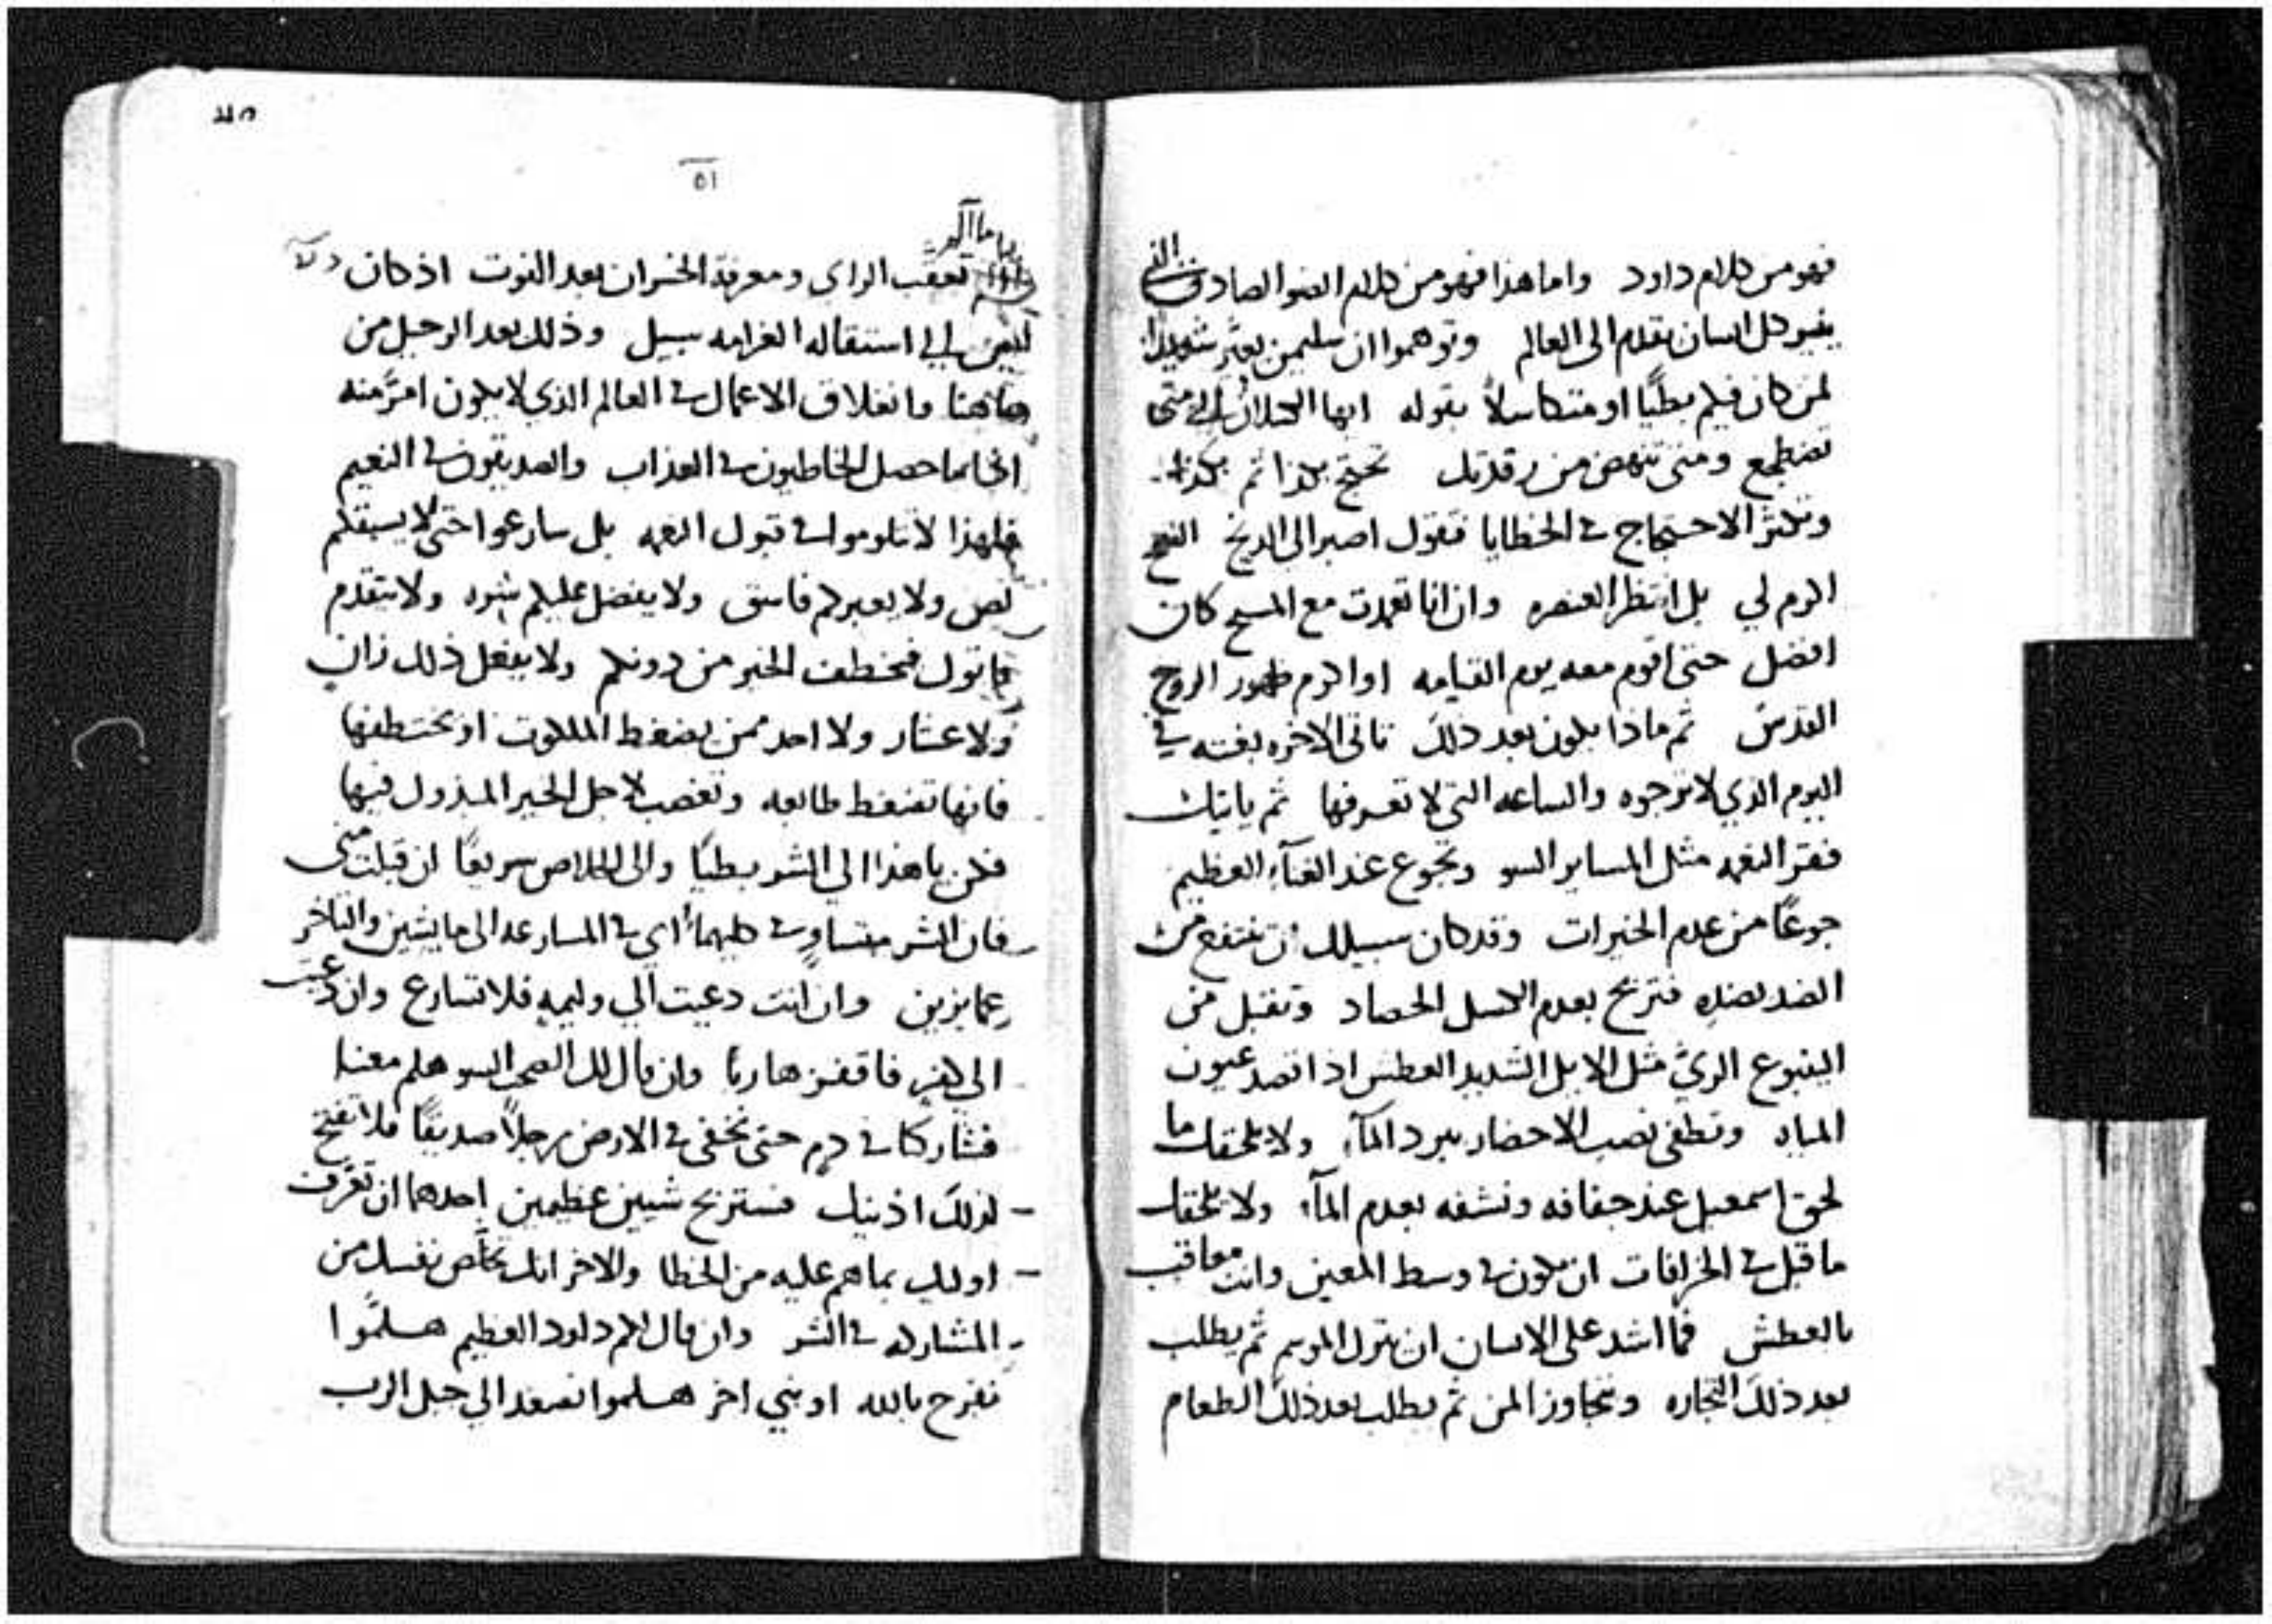 فهو من كلام داود واما هذا فهو من كلام الضو الصادق الذي
ينير كل انسان يقدم الى العالم وتوهموا ان سليمن يعيّر شديدا
لمن كان فيكم بطيًا او متكاسلاً بقوله ايها الكسلان الى متى
تضطجع ومتى تنهض من رقدتك تحتج بكذا ثم بكذا
وتكثر الاحتجاج في الخطايا فتقول اصبر الى الدنح الفصح
اكرم لي بل انتظر العنصره وان انا تعمدت مع المسيح كان
افضل حتى اقوم معه يوم القيامه او اكرم ظهور الروح
القدس ثم ماذا يكون بعد ذلك تاتى الاخره بغته في
اليوم الذي لا ترجوه والساعه التي لا تعرفها ثم ياتيك
فقر النعمه مثل المساير السو وتجوع عند الغنآء العظيم
جوعًا من عدم الخيرات وقد كان سبيلك ان تنتفع من
الضد بضده فتربح بعدم الكسل الحصاد وتقبل من
الينبوع الريّ مثل الابل الشديد العطش اذا قصد عيون
المياه وتطفى نصب الاحضار ببرد المآء ولا يلحقك ما
لحق اسمعيل عند جفافه ونشفه بعدم المآء ولا يلحقك
ما قيل في الخرافات ان تكون في وسط المعين وانت معاقب
بالعطش فما اشد على الانسان ان يترك الموسم ثم يطلب
بعد ذلك التجاره ويتجاوز المن ثم يطلب بعد ذلك الطعام
٥١
ياما اكره
تعقب الراى ومعرفة الخسران بعد الفوت اذ كان
ليس الى استقاله الغرامه سبيل وذلك بعد الرحيل من
هاهنا وانغلاق الاعمال في العالم الذي لا يكون امرّ منه
اذا ما حصل الخاطيون في العذاب والصديقون في النعيم
فلهذا لا تتلوموا في قبول النعمه بل سارعوا حتى لا يسبقكم
لص ولا يعبركم فاسق ولا يفضل عليكم شره ولا يتقدم
قاتول فيخطف الخير من دونكم ولا يفعل ذلك زانٍ
ولا عشار ولا احد ممن يضغط الملكوت او يختطفها
فانها تضغط طايعه وتغصب لاجل الخير المبذول فيها
فكن يا هذا الي الشر بطيًا والى الخلاص سريعًا ان قبلت منى
فان الشر متساوٍ في كليهما اي في المسارعه الى ما يشين والتاخر
عما يزين وان انت دعيت الي وليمه فلا تسارع وان دعيت
الى كفر فاقفز هاربًا وان قال لك الصحب السو هلم معنا
فشاركنا في دم حتى نخفى في الارض رجلاً صديقًا فلا تفتح
لذلك اذنيك فستربح شيين عظيمين احدهما ان تعرّف
اوليك بما هم عليه من الخطا والاخر انك تخلّص نفسك من
المشاركه في الشر وان قال لكم داود العظيم هلمّوا
نفرح بالله او نبي اخر هلموا نصعد الي جبل الرب